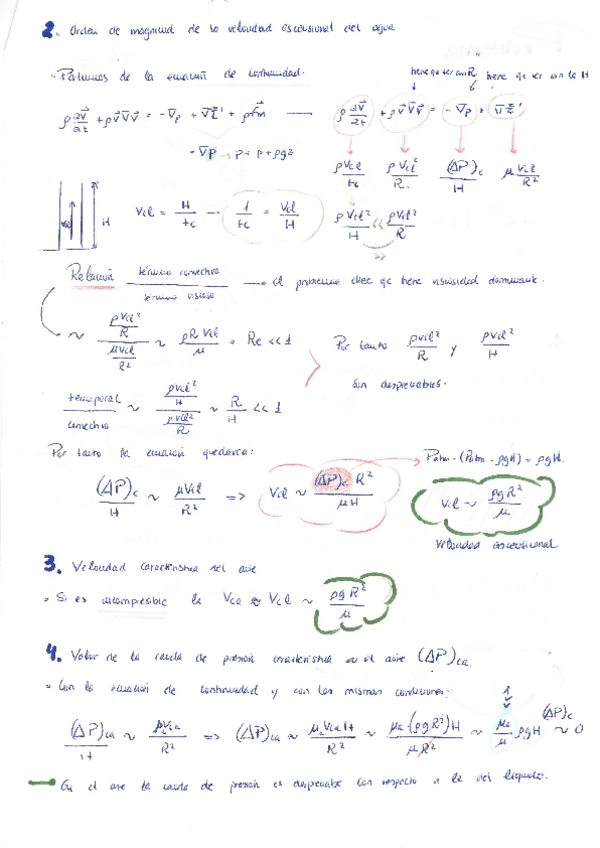 2. Orden de magnitud de la velocidad ascensional del agua
· Partimos de la ecuación de continuidad.
tiene que ver con R tiene que ver con la H
ρ ∂v⃗/∂t + ρv⃗∇v⃗ = -∇p + ∇τ' + ρf⃗m — ρ ∂v⃗/∂t + ρv⃗∇v⃗ = -∇p + ∇τ'
-∇P → P = p + ρgz
ρVcl/tc ρVcl²/R (ΔP)c/H μVcl/R²
H Vcl = H/tc → 1/tc = Vcl/H ρVcl²/H << ρVcl²/R
>>
Relación término convectivo/término viscoso → el problema dice qe tiene viscosidad dominante.
~ (ρVcl²/R)/(μVcl/R²) ~ ρRVcl/μ = Re << 1 Por tanto ρVcl²/R y ρVcl²/H
son despreciables.
temporal/convectivo ~ (ρVcl²/H)/(ρVcl²/R) ~ R/H << 1
Por tanto la ecuación quedaría: Patm - (Patm - ρgH) = ρgH.
(ΔP)c/H ~ μVcl/R² => Vcl ~ (ΔP)c R²/μH Vcl ~ ρgR²/μ
Velocidad ascensional
3. Velocidad característica del aire
· Si es incompresible la Vca ≈ Vcl ~ ρgR²/μ
4. Valor de la caída de presión característica en el aire (ΔP)ca.
· Con la ecuación de continuidad y con las mismas condiciones:
(ΔP)ca/H ~ μaVca/R² => (ΔP)ca ~ μaVcaH/R² ~ μa(ρgR²)H/μR² ~ μa/μ ρgH (ΔP)c ~ 0
En el aire la caída de presión es despreciable con respecto a la del líquido.